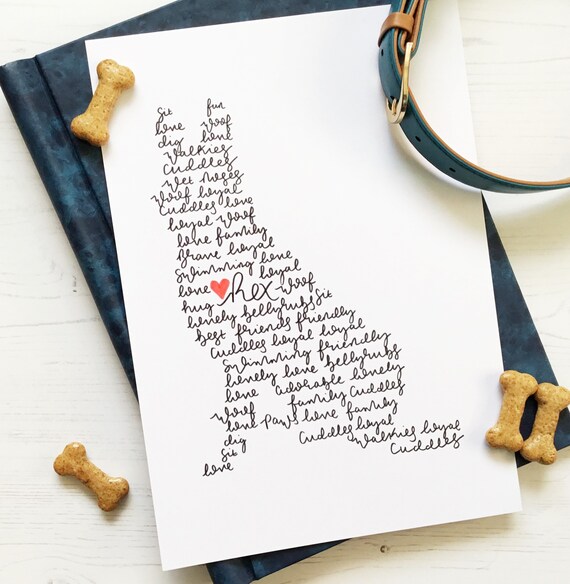 sit fun
love woof
dig love
walkies
cuddles
wet noses
woof loyal
cuddles love
loyal woof
love family
brave loyal
swimming love
love loyal
hug rex woof
lovely bellyrubs sit
best friends friendly
cuddles loyal loyal
swimming friendly
lovely love bellyrubs
love adorable lovely
woof family cuddles
love paws love family
dig cuddles loyal
sit walkies loyal
love cuddles